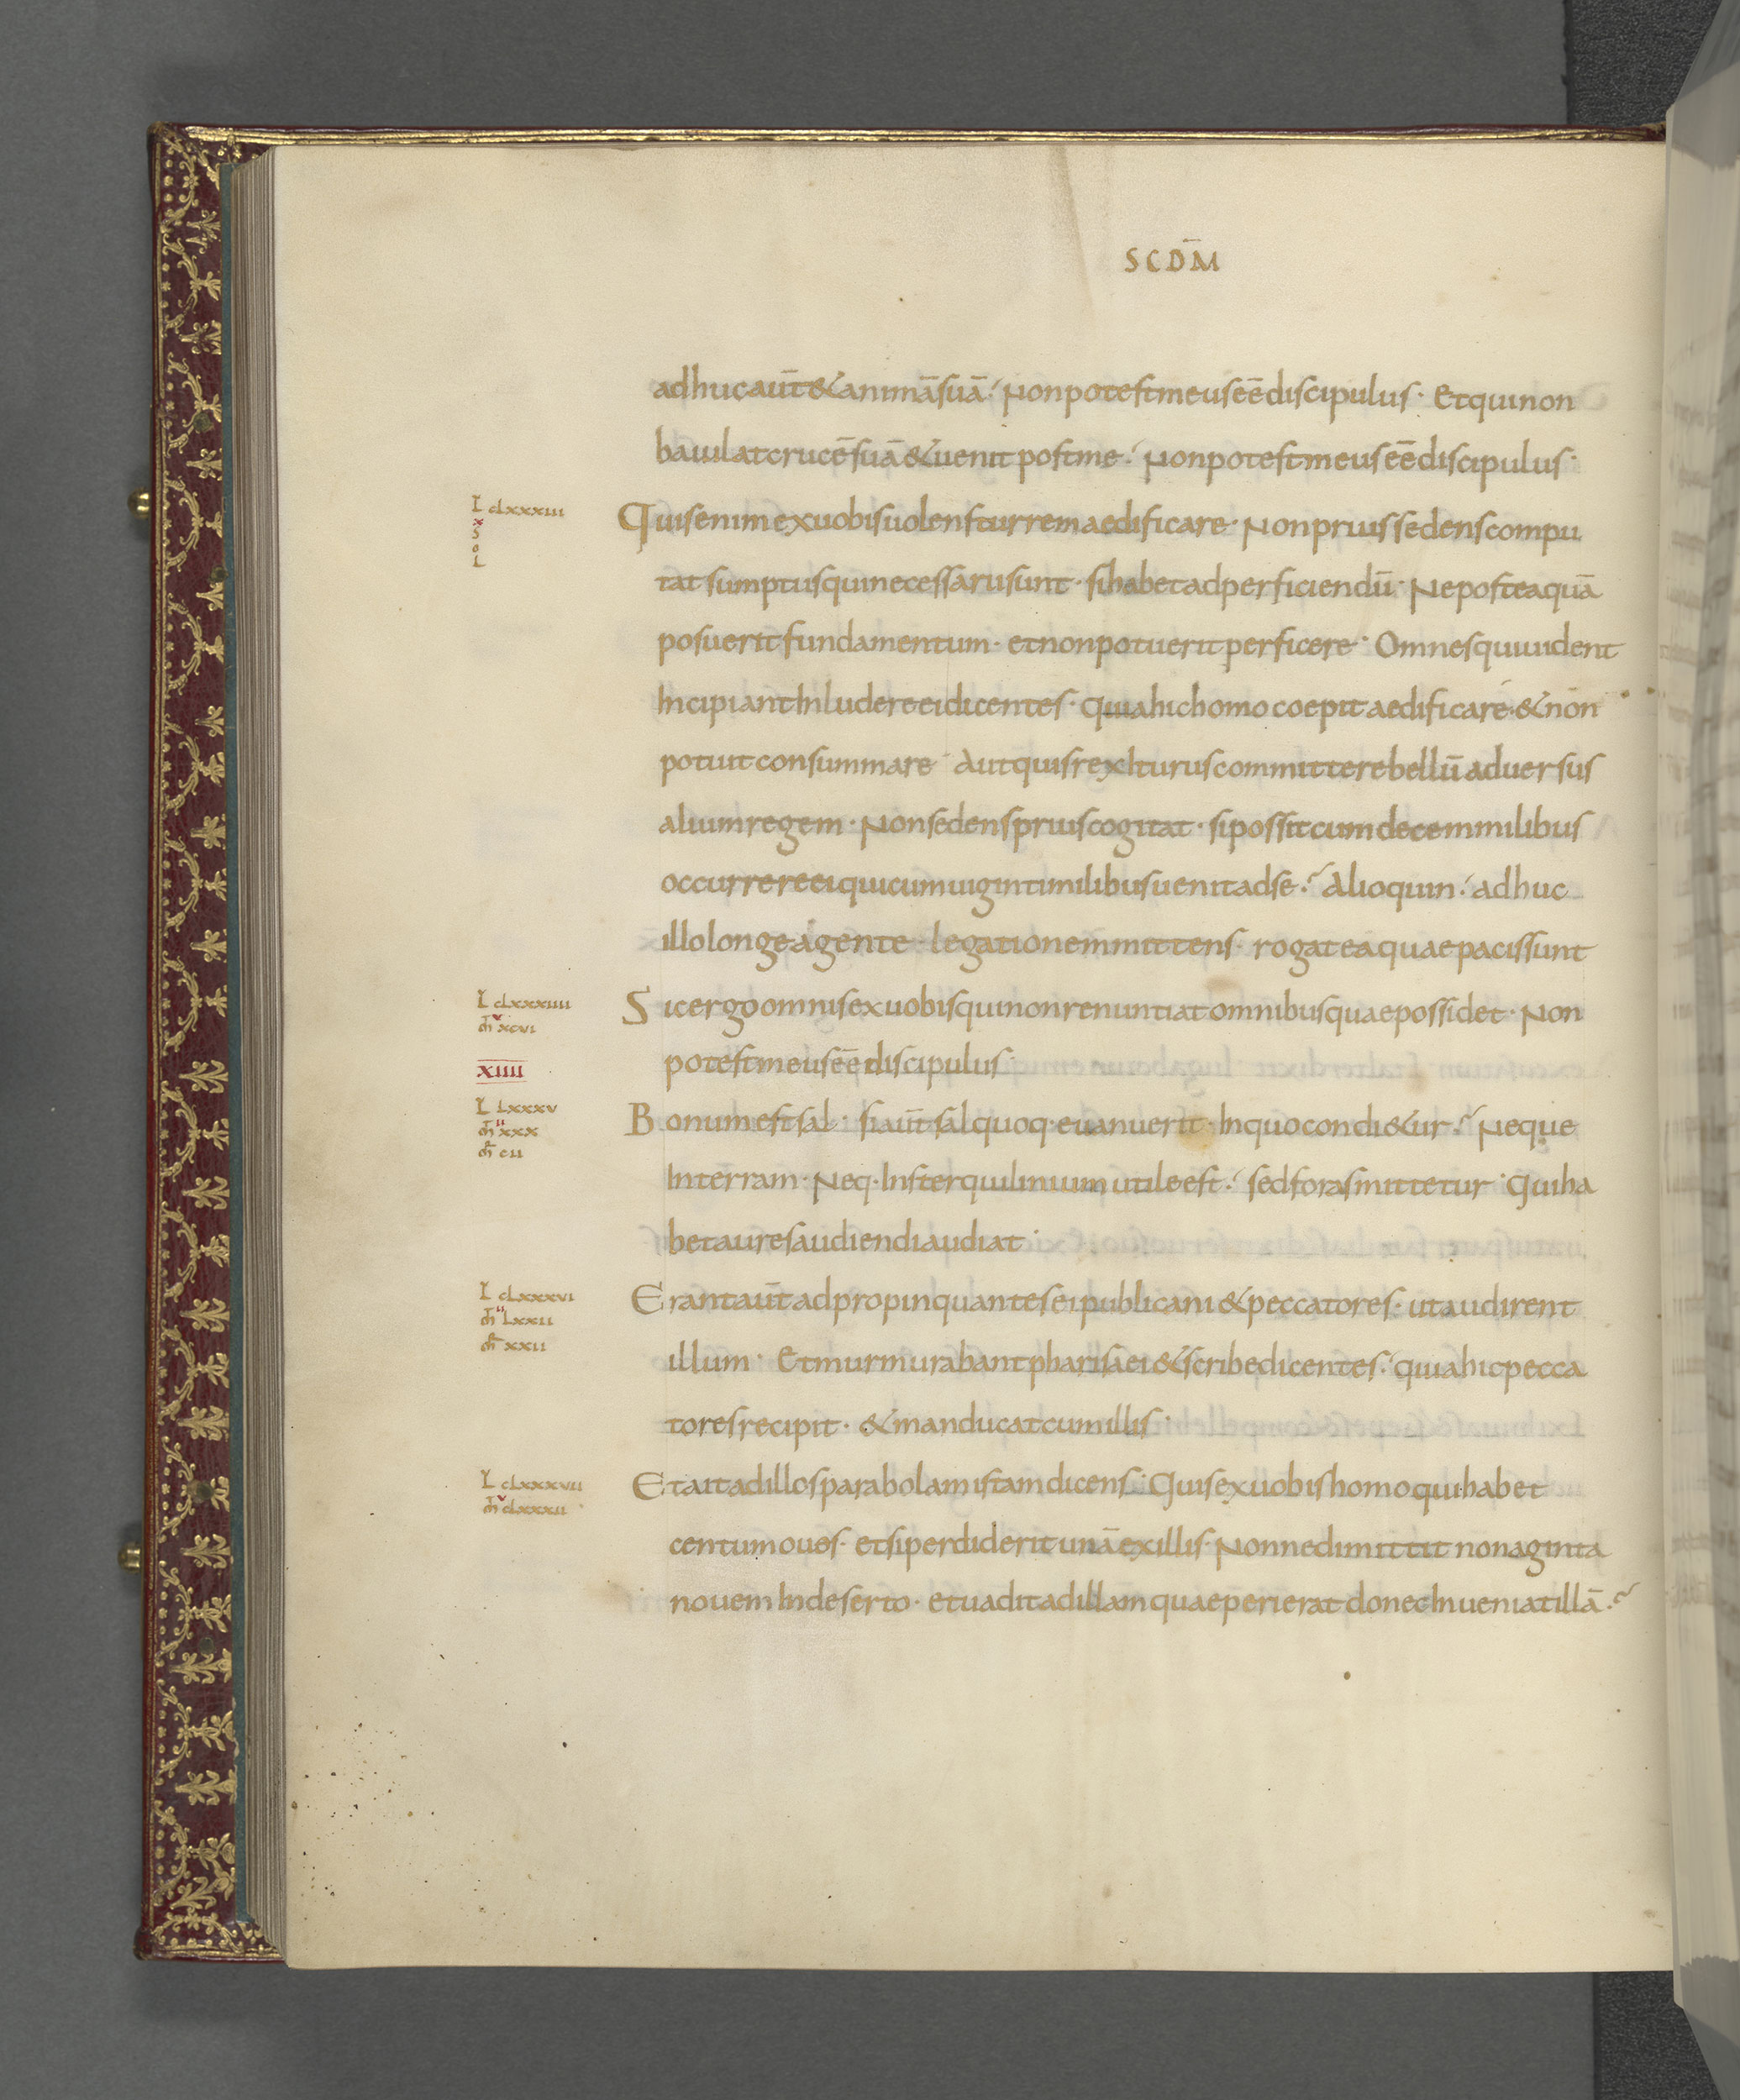 SCDM̄
adhuc aut̄ & animā suā. Non potest meus eē discipulus. Et qui non
baiulat crucē suā & uenit post me. Non potest meus eē discipulus.
L CLXXXIII
X
SOL
Quis enim ex uobis uolens turrem aedificare. Non prius sedens compu
tat sumptus qui necessarii sunt. si habet ad perficiendū. Ne postea quā
posuerit fundamentum. et non potuerit perficere. Omnes qui uident
Incipiant Inludere ei dicentes. Quia hic homo coepit aedificare. & non
potuit consummare. Aut quis rex Iturus committere bellū aduersus
alium regem. Non sedens prius cogitat. si possit cum decem milibus
occurrere ei qui cum uiginti milibus uenit ad se. Alioquin. adhuc
illo longe agente. legationem mittens. rogat ea quae pacis sunt
L CLXXXIIII
V
m̄ XCVI
Sic ergo omnis ex uobis qui non renuntiat omnibus quae possidet. Non
potest meus eē discipulus.
XIIII
L LXXXV
II
m̄ XXX
m̄ CII
Bonum est sal. si aut̄ sal quoq. euanuerit. In quo condi&ur. Neque
In terram. Neq. In sterquilinium utile est. sed foras mittetur. Qui ha
bet aures audiendi audiat.
L CLXXXVI
II
m̄ LXXII
m̄ XXII
Erant aut̄ adpropinquantes ei publicani & peccatores. ut audirent
illum. Et murmurabant pharisaei & scribe dicentes. quia hic pecca
tores recipit. & manducat cum illis.
L CLXXXVII
V
m̄ CLXXXII
Et ait ad illos parabolam istam dicens. Quis ex uobis homo qui habet
centum oues. et si perdiderit unā ex illis. Nonne dimittit nonaginta
nouem In deserto. et uadit ad illam quae perierat donec Inueniat illā.